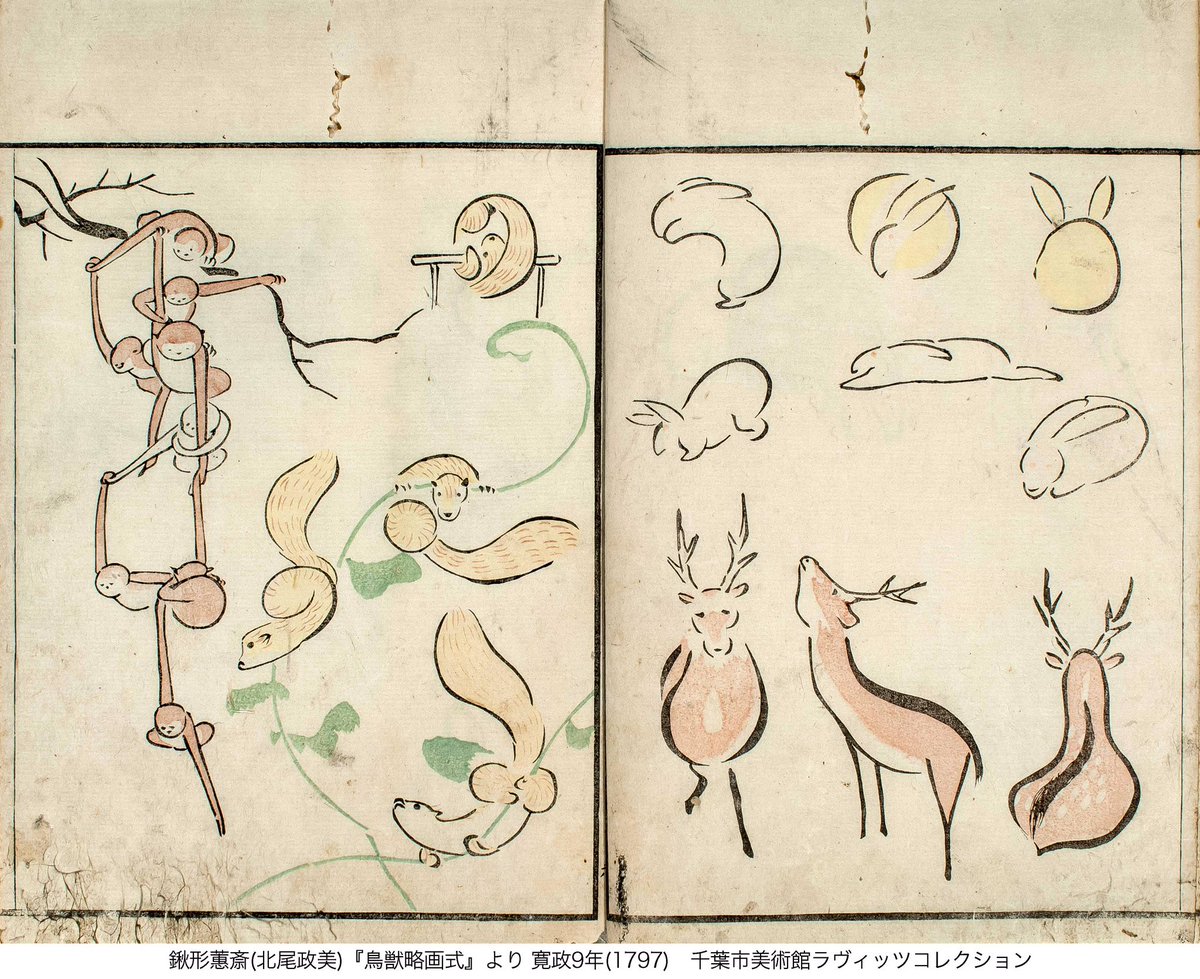 鍬形蕙斎(北尾政美)『鳥獣略画式』より 寛政9年(1797)　千葉市美術館ラヴィッツコレクション